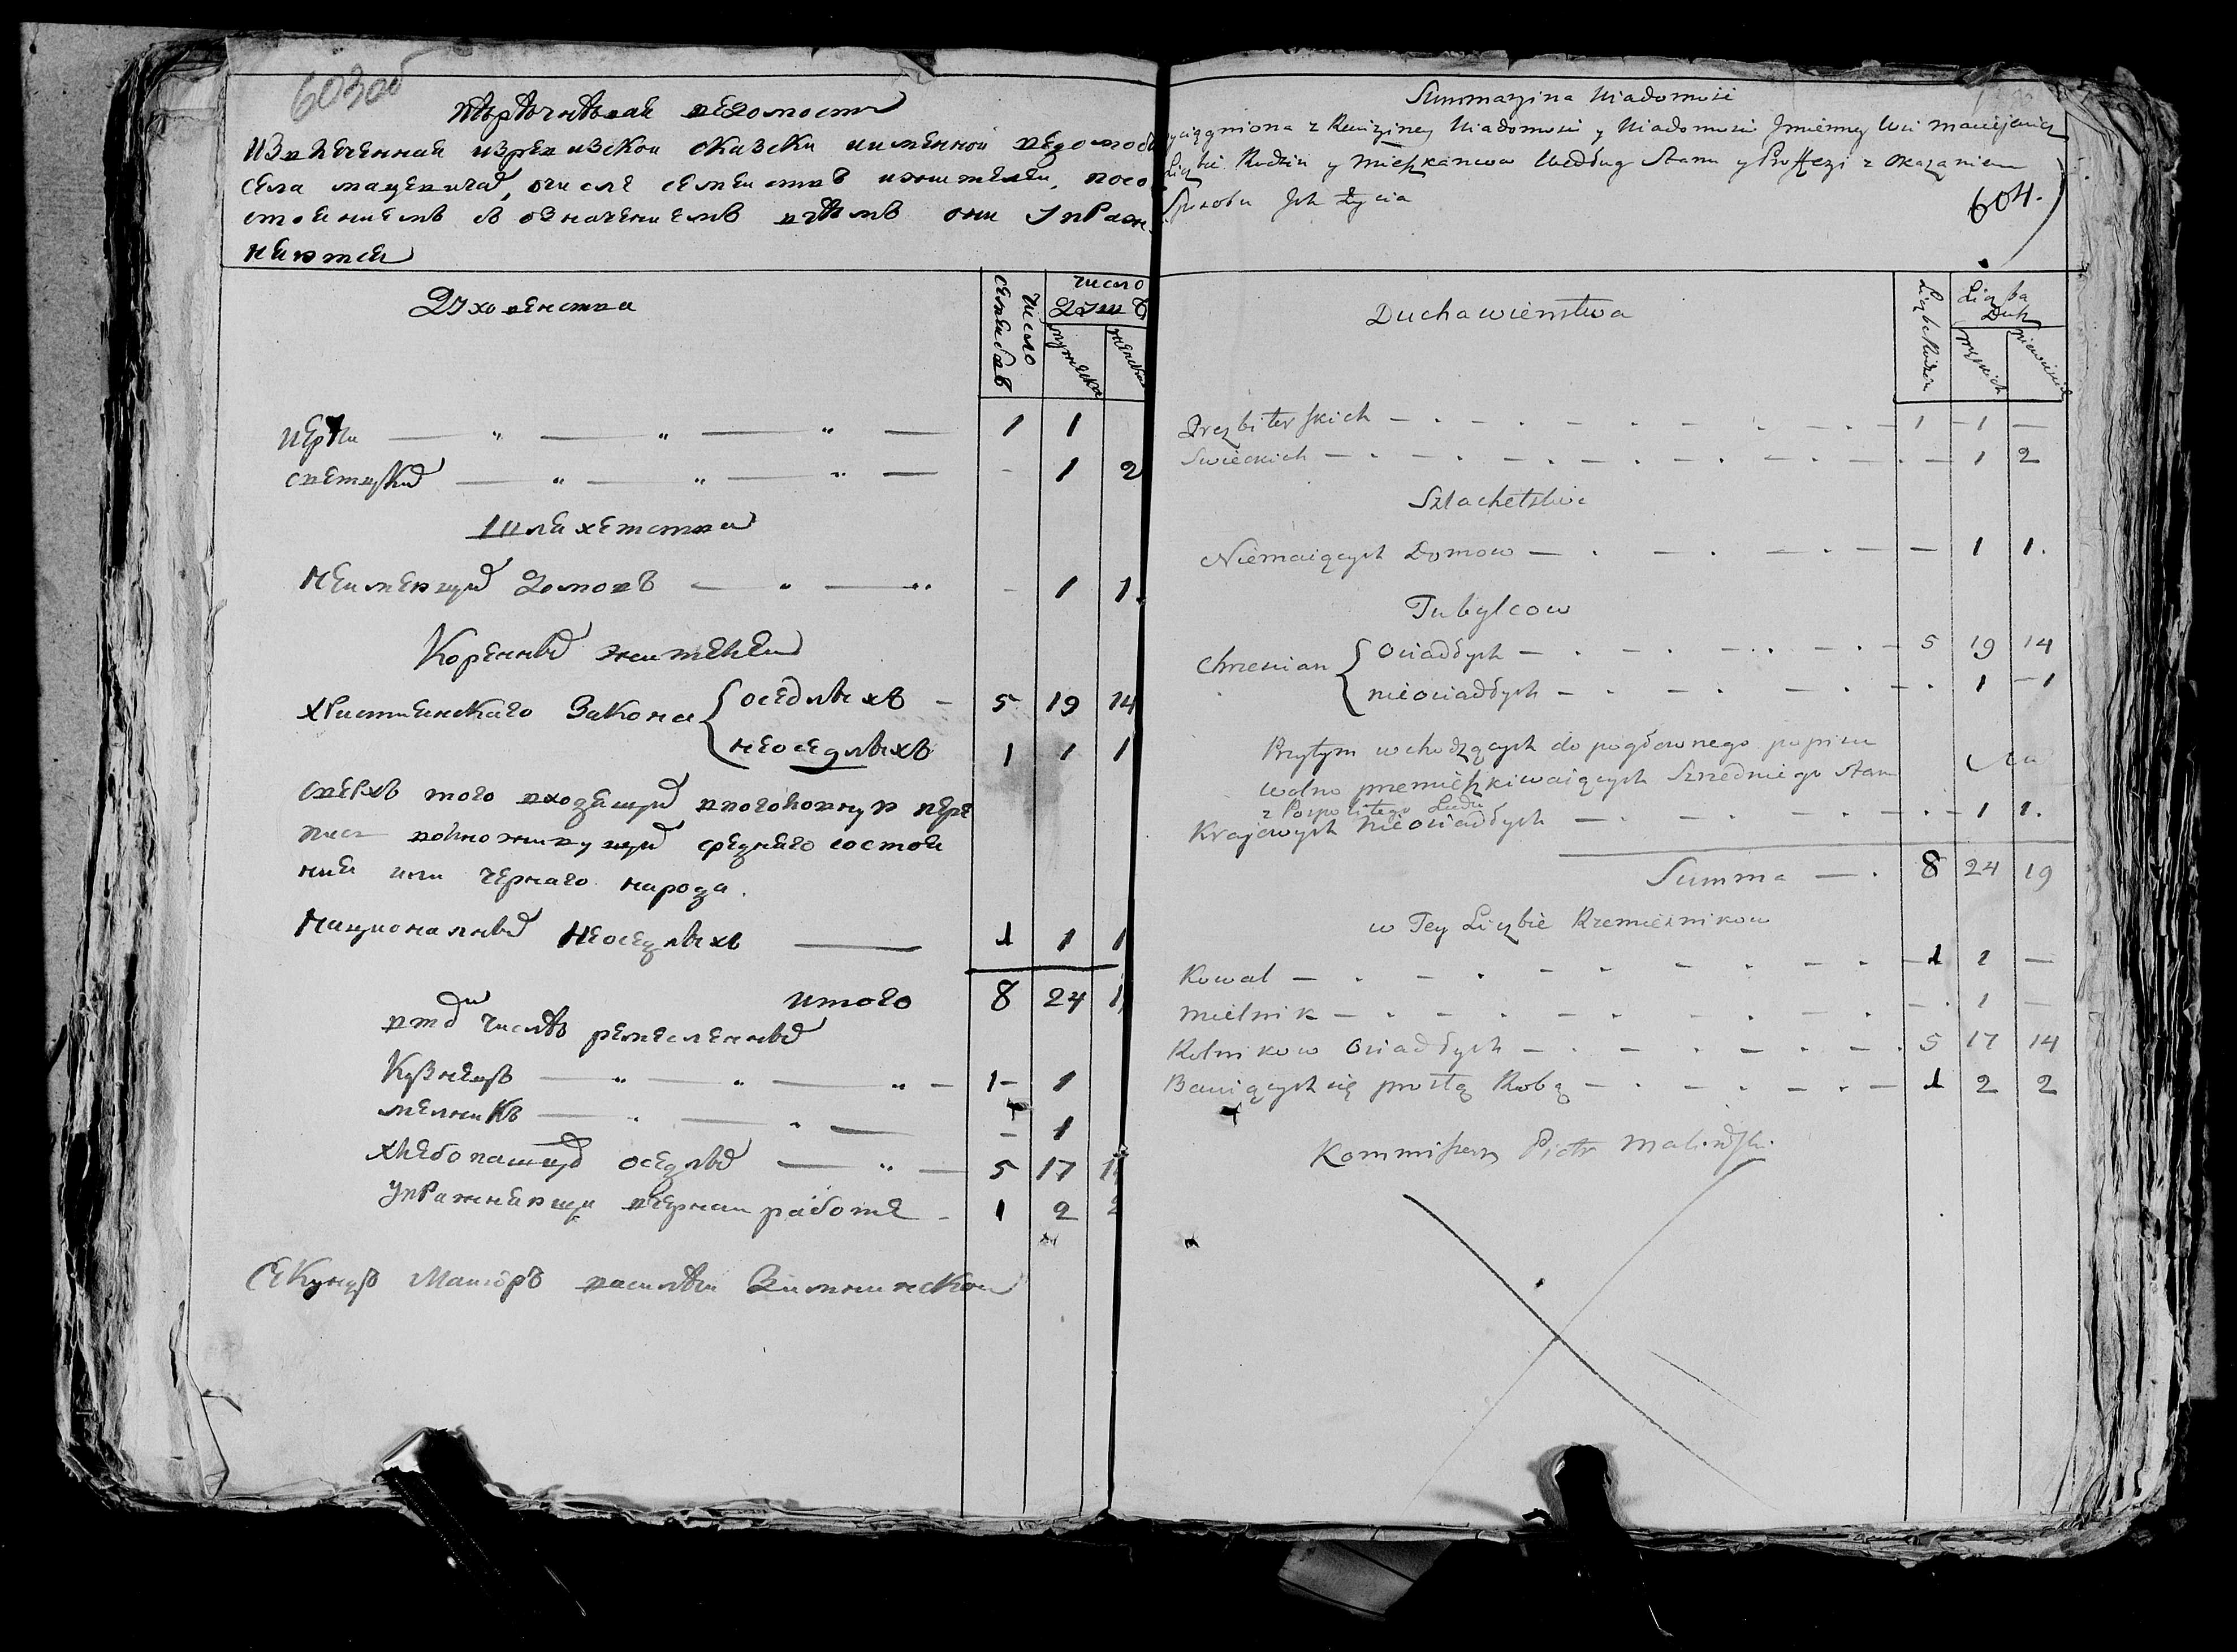 603об
перечневая ведомость
Извлеченная изревизской сказски иименной ведомос
села мацевичъ, очисле семействъ ижителей, посо
стояниемъ съ означениемъ вчемъ они упраж
няются
Духовенства
число семействъ
число душъ
мужеска
женска
1 1
светскихъ — 1 2
Шляхетства
Неимеющихъ домовъ — 1 1
Коренныхъ жителей
християнскаго Закона { оседлыхъ — 5 19 14
неоседлыхъ 1 1 1
сверхъ того входящихъ впоголовную пере
пись вольноживущихъ средняго состоя
ния или чернаго народа.
Национальныхъ неоседлыхъ — 1 1 1
итого 8 24 1
втомъ числе ремесленныхъ
Кузнецъ — 1 — 1
мельникъ — 1
хлебопашцовъ оседлыхъ — 5 17 1
упражняющи вчерной работе — 1 2 2
Секундъ Маиоръ василей
Summaryina Wiadomość
yciągniona z Rewiziney Wiadomości y Wiadomości Jmienney Wsi Maciejewicz
Liczbie Rodzin y Mieszkancow Według Stanu y Proffezi z okazaniem
Sposobu Jch Życia
604.
Duchawienstwa
Liczba Rodzin
Liczba Duch
męskich
niewieścich
Prezbiterskich — 1 — 1 —
Swieckich — 1 2
Szlachetstwa
Niemaiących Domow — 1 1.
Tubylcow
Chrzescian { Osiadłych — 5 19 14
nieosiadłych — 1 — 1
Przytym wchodzących do pogłownego popisu
wolno przemieszkiwaiących Szredniego stanu
z Pospolitego Ludu
Krajowych nieosiadłych — 1 1.
Summa — 8 24 19
w Tey Liczbie Rzemieśnikow
Kowal — 1 1 —
Mielnik — 1 —
Rolnikow Osiadłych — 5 17 14
Bawiących się prostą Robą — 1 2 2
Kommissarz Piotr